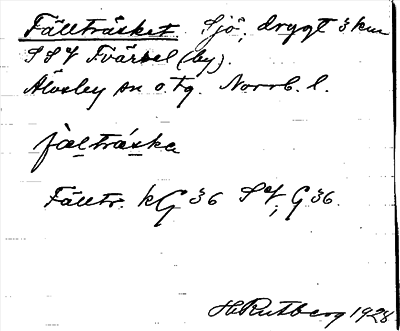 Fällträsket Sjö, drygt 3 km
SSV Tvärsel (by).
Älvsby sn o. tg. Norrb. l.
fäl̲trá̲ska
Fälltr. kG 36 SV, G 36.
H Rutberg 1928